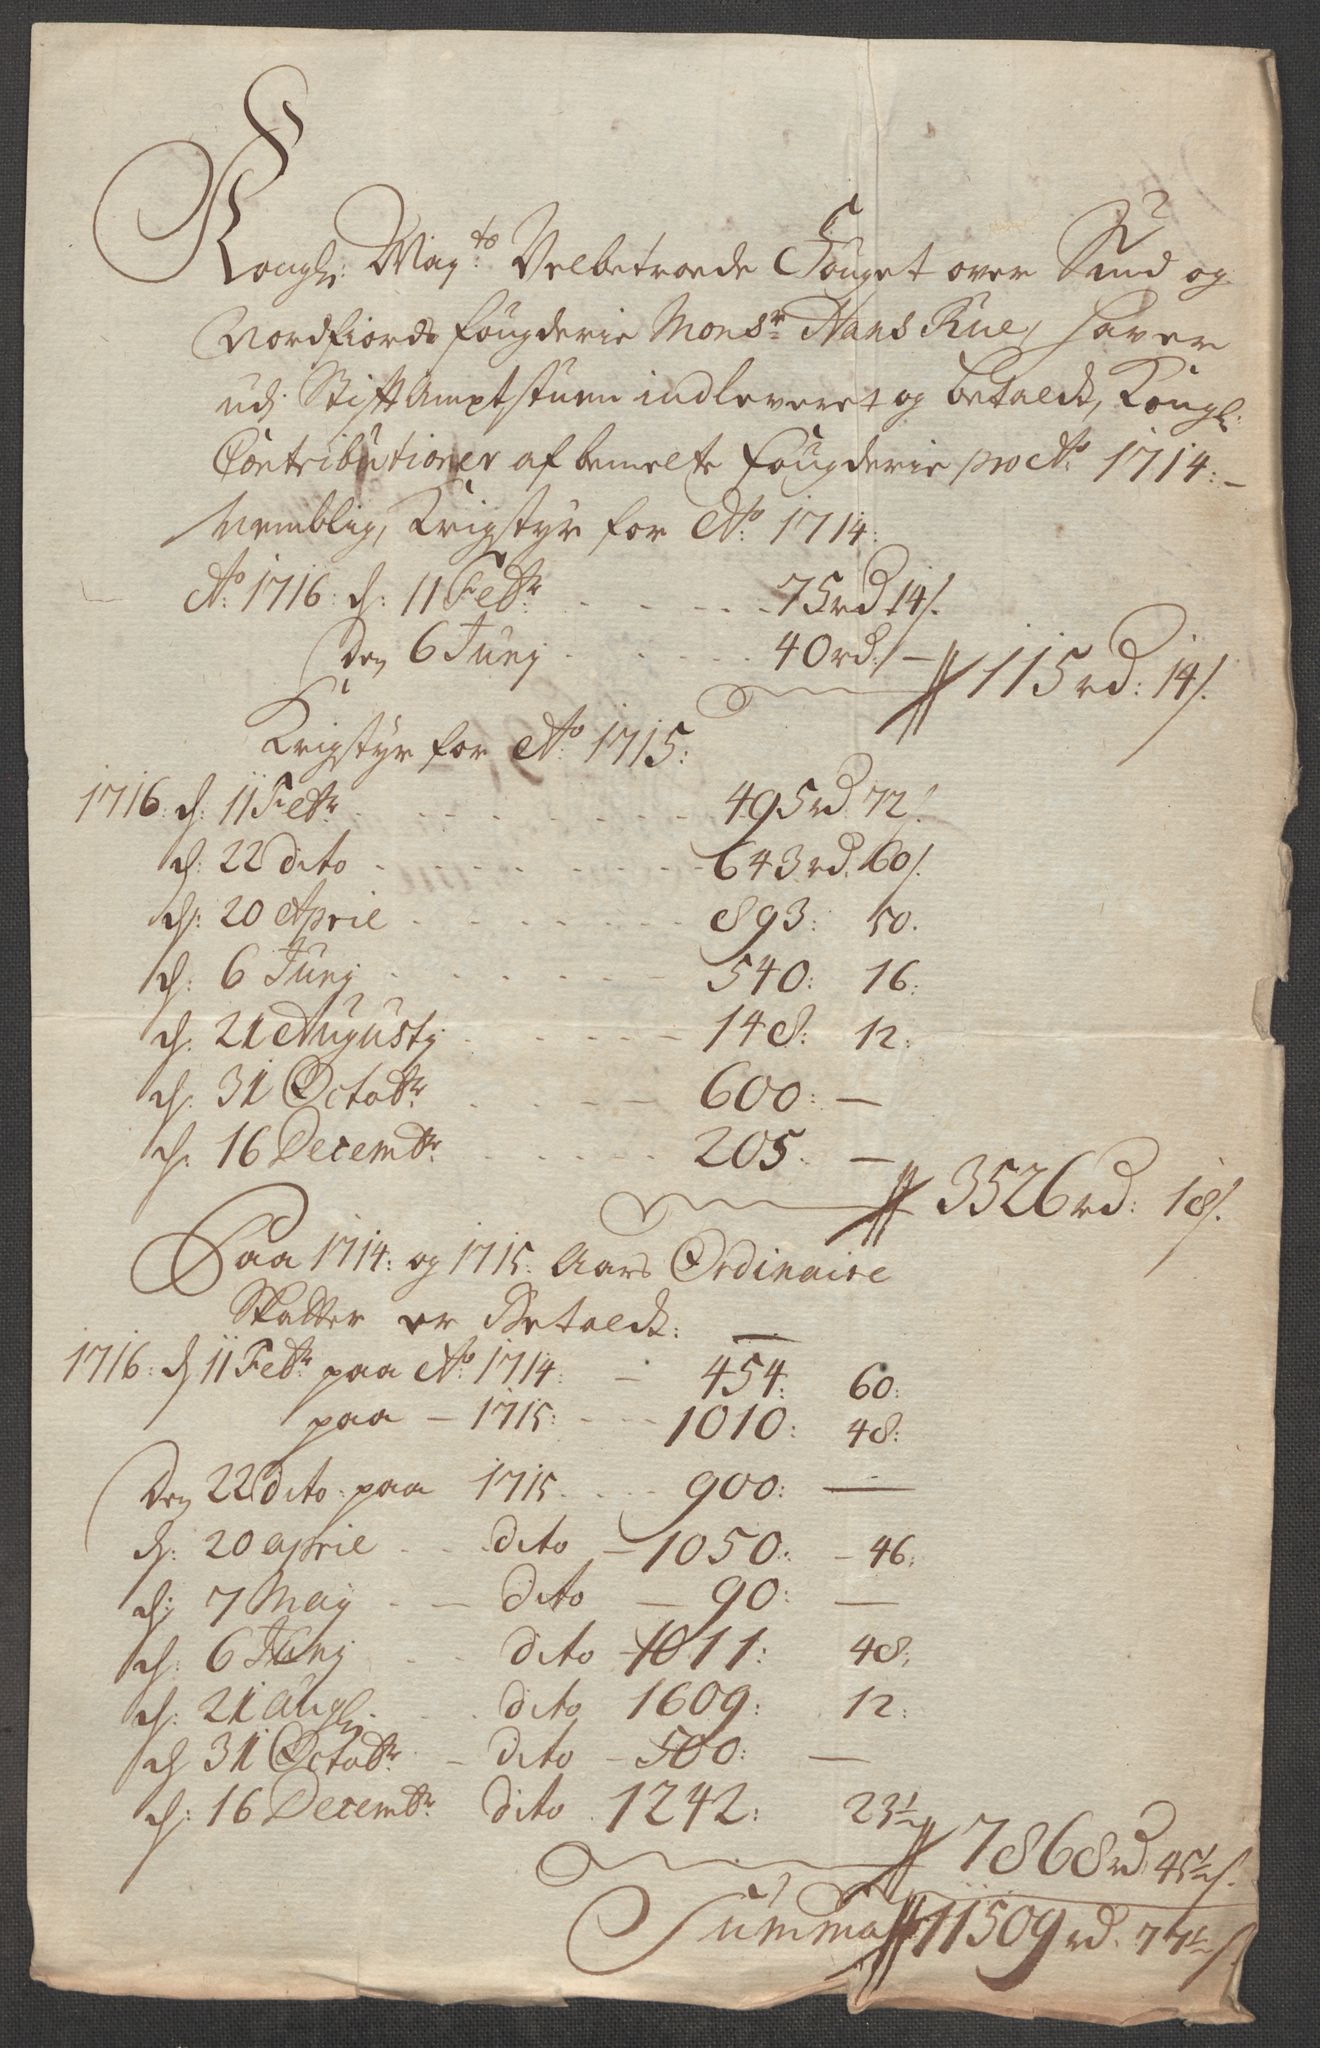 Kongl: May:ts Velbetroede Fouget over Sund og
Nordfiords fougderie Monsr: Hans Rue, haver
udj Stifft Amptstuen indleveret og betaldt, Kongl:
Contributioner af bemelte fougderie pro Ao: 1714:
Nemblig, Krigstyr for Ao: 1714:
Ao: 1716: d: 11 Febr: 75 rd 14 s.
Den 6 Junj 40 rd: — 115 rd: 14 s.
Krigstyr for Ao: 1715:
1716: d: 11 Febr: 495 rd 72 s.
d: 22 dito 643 rd. 60 s.
d: 20 April 893: 50.
d: 6 Junj 540: 16:
d: 21 Augustj 148: 12:
d: 31 Octobr: 600: —
d: 16 Decembr: 205. —
3526 rd: 18 s.
Paa 1714: og 1715. Aars Ordinaire
Skatter er Betaldt:
1716: d 11 Febr: paa Ao: 1714: 454: 60:
paa — 1715: 1010: 48:
Den 22 dito paa 1715. 900: —
d: 20 april dito 1050: 46:
d: 7 May dito 90: —
d: 6 Junj dito 1011: 48:
d: 21 Aug: dito 1609: 12:
d 31 Octobr: dito 500: —
d: 16 Decembr: dito 1242: 23½
7868 rd 45½ s.
Summa 11509 rd. 77½ s.